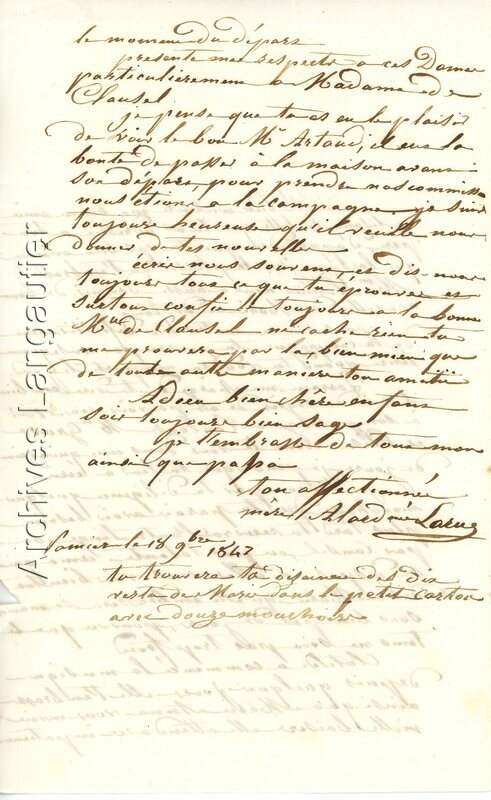 le moment du départ
presente mes respects a ces Dames
particulierement a Madame de
Clausel
je pense que tu as eu le plaisir
de voir le bon Mr Artaud, il eut la
bonté de passer à la maison avant
son départ pour prendre nos commissi
nous étions a la campagne. je suis
toujours heureuse qu'il veuille nous
donner de tes nouvelle
écris nous souvent, et dis-nous
toujours tous ce que tu éprouves et
surtous confie toujours a la bonne
Mme de Clausel ne cache rien tu
me prouvera par la, bien mieux que
de toute autre maniere ton amitié
Adieu bien chère enfant
soit toujours bien sage
je t'embrasse de tous mon
ainsi que papa
ton affectionnée
mère Alard née Larue
Pamier le 18 9bre 1847
tu trouvera ta disaine des dix
dans le petit carton
avec douze mouchoirs
Archives Langautier